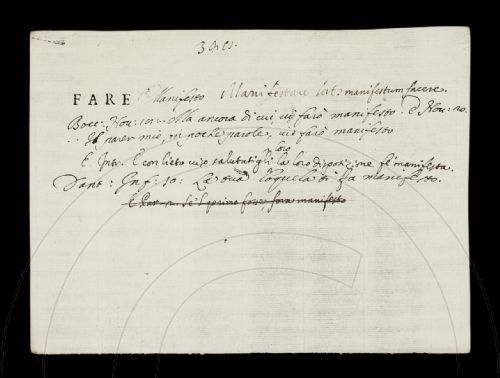 FARE Manifesto Manifestare lat: manifestum facere.
Bocc: Nov: 101: Ma ancora di cui, vi farò manifesto. E Nov: 20.
Il parer mio, in poche parole, vi farò manifesto
E Intr. E con lieto viso salutatigli loro la loro disposizione fe manifesta.
Dant: Inf: 10: La tua loquela ti fa manifesto.
E Par. se l primo fosse, fora manifesto